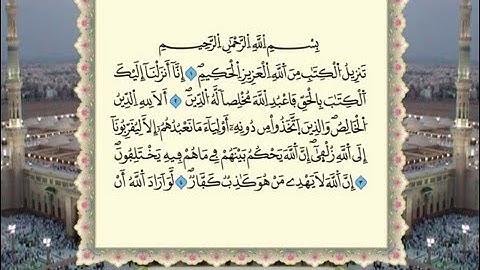 بِسْمِ اللَّهِ الرَّحْمَٰنِ الرَّحِيمِ
تَنزِيلُ الْكِتَابِ مِنَ اللَّهِ الْعَزِيزِ الْحَكِيمِ ١ إِنَّا أَنزَلْنَا إِلَيْكَ
الْكِتَابَ بِالْحَقِّ فَاعْبُدِ اللَّهَ مُخْلِصًا لَّهُ الدِّينَ ٢ أَلَا لِلَّهِ الدِّينُ
الْخَالِصُ وَالَّذِينَ اتَّخَذُوا مِن دُونِهِ أَوْلِيَاءَ مَا نَعْبُدُهُمْ إِلَّا لِيُقَرِّبُونَا
إِلَى اللَّهِ زُلْفَىٰ إِنَّ اللَّهَ يَحْكُمُ بَيْنَهُمْ فِي مَا هُمْ فِيهِ يَخْتَلِفُونَ
٣ إِنَّ اللَّهَ لَا يَهْدِي مَنْ هُوَ كَاذِبٌ كَفَّارٌ ٤ لَّوْ أَرَادَ اللَّهُ أَن